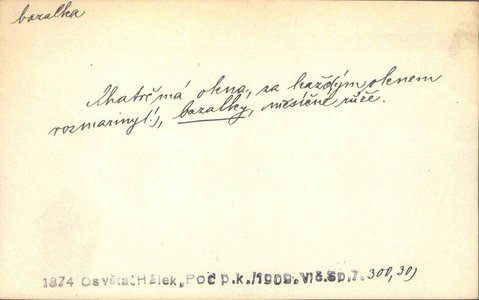 bazalka
Chatrč má okna, za každým oknem
rozmarinyl!), bazalky, měsíčné růže.
1874 Osvěta. Hálek, Poč p.k./1909. V.š.Sp.7. 300, 30)